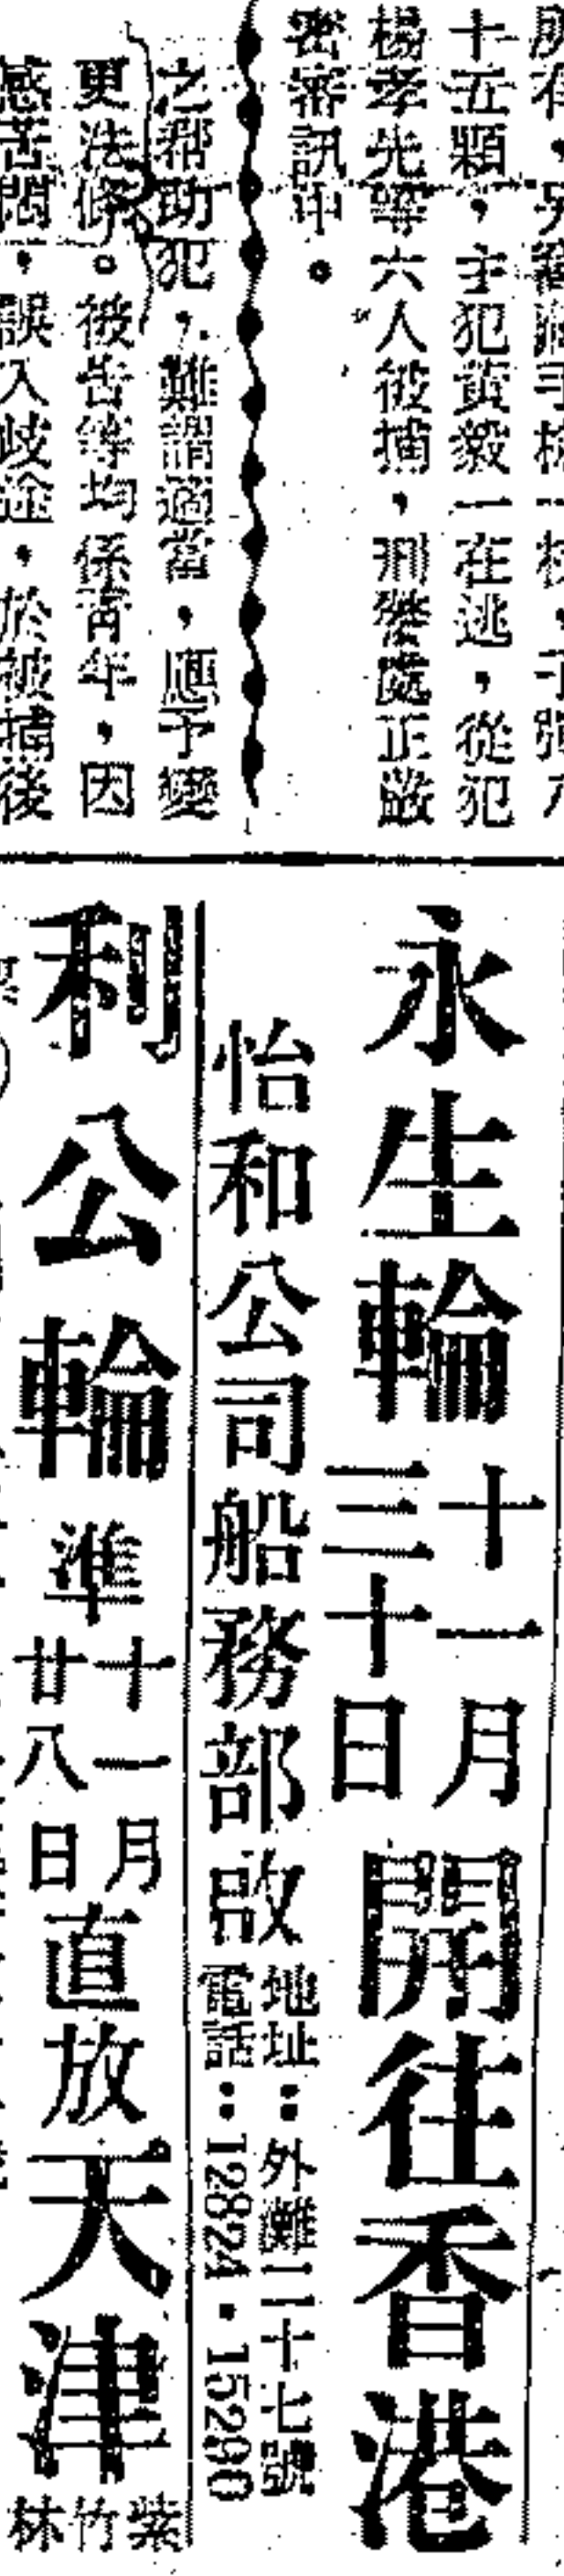 十五顆，主犯黃毅一在逃，從犯
楊孝先等六人被捕，刑警處正嚴
密審訊中。
之幫助犯，難謂適當，應予變
更法條。被告等均係青年，因
感苦悶，誤入歧途，於被捕後
永生輪 十一月三十日 開往香港
怡和公司船務部啟
地址：外灘二十七號
電話：12824·15290
利公輪 準十一月廿八日直放天津
紫竹林